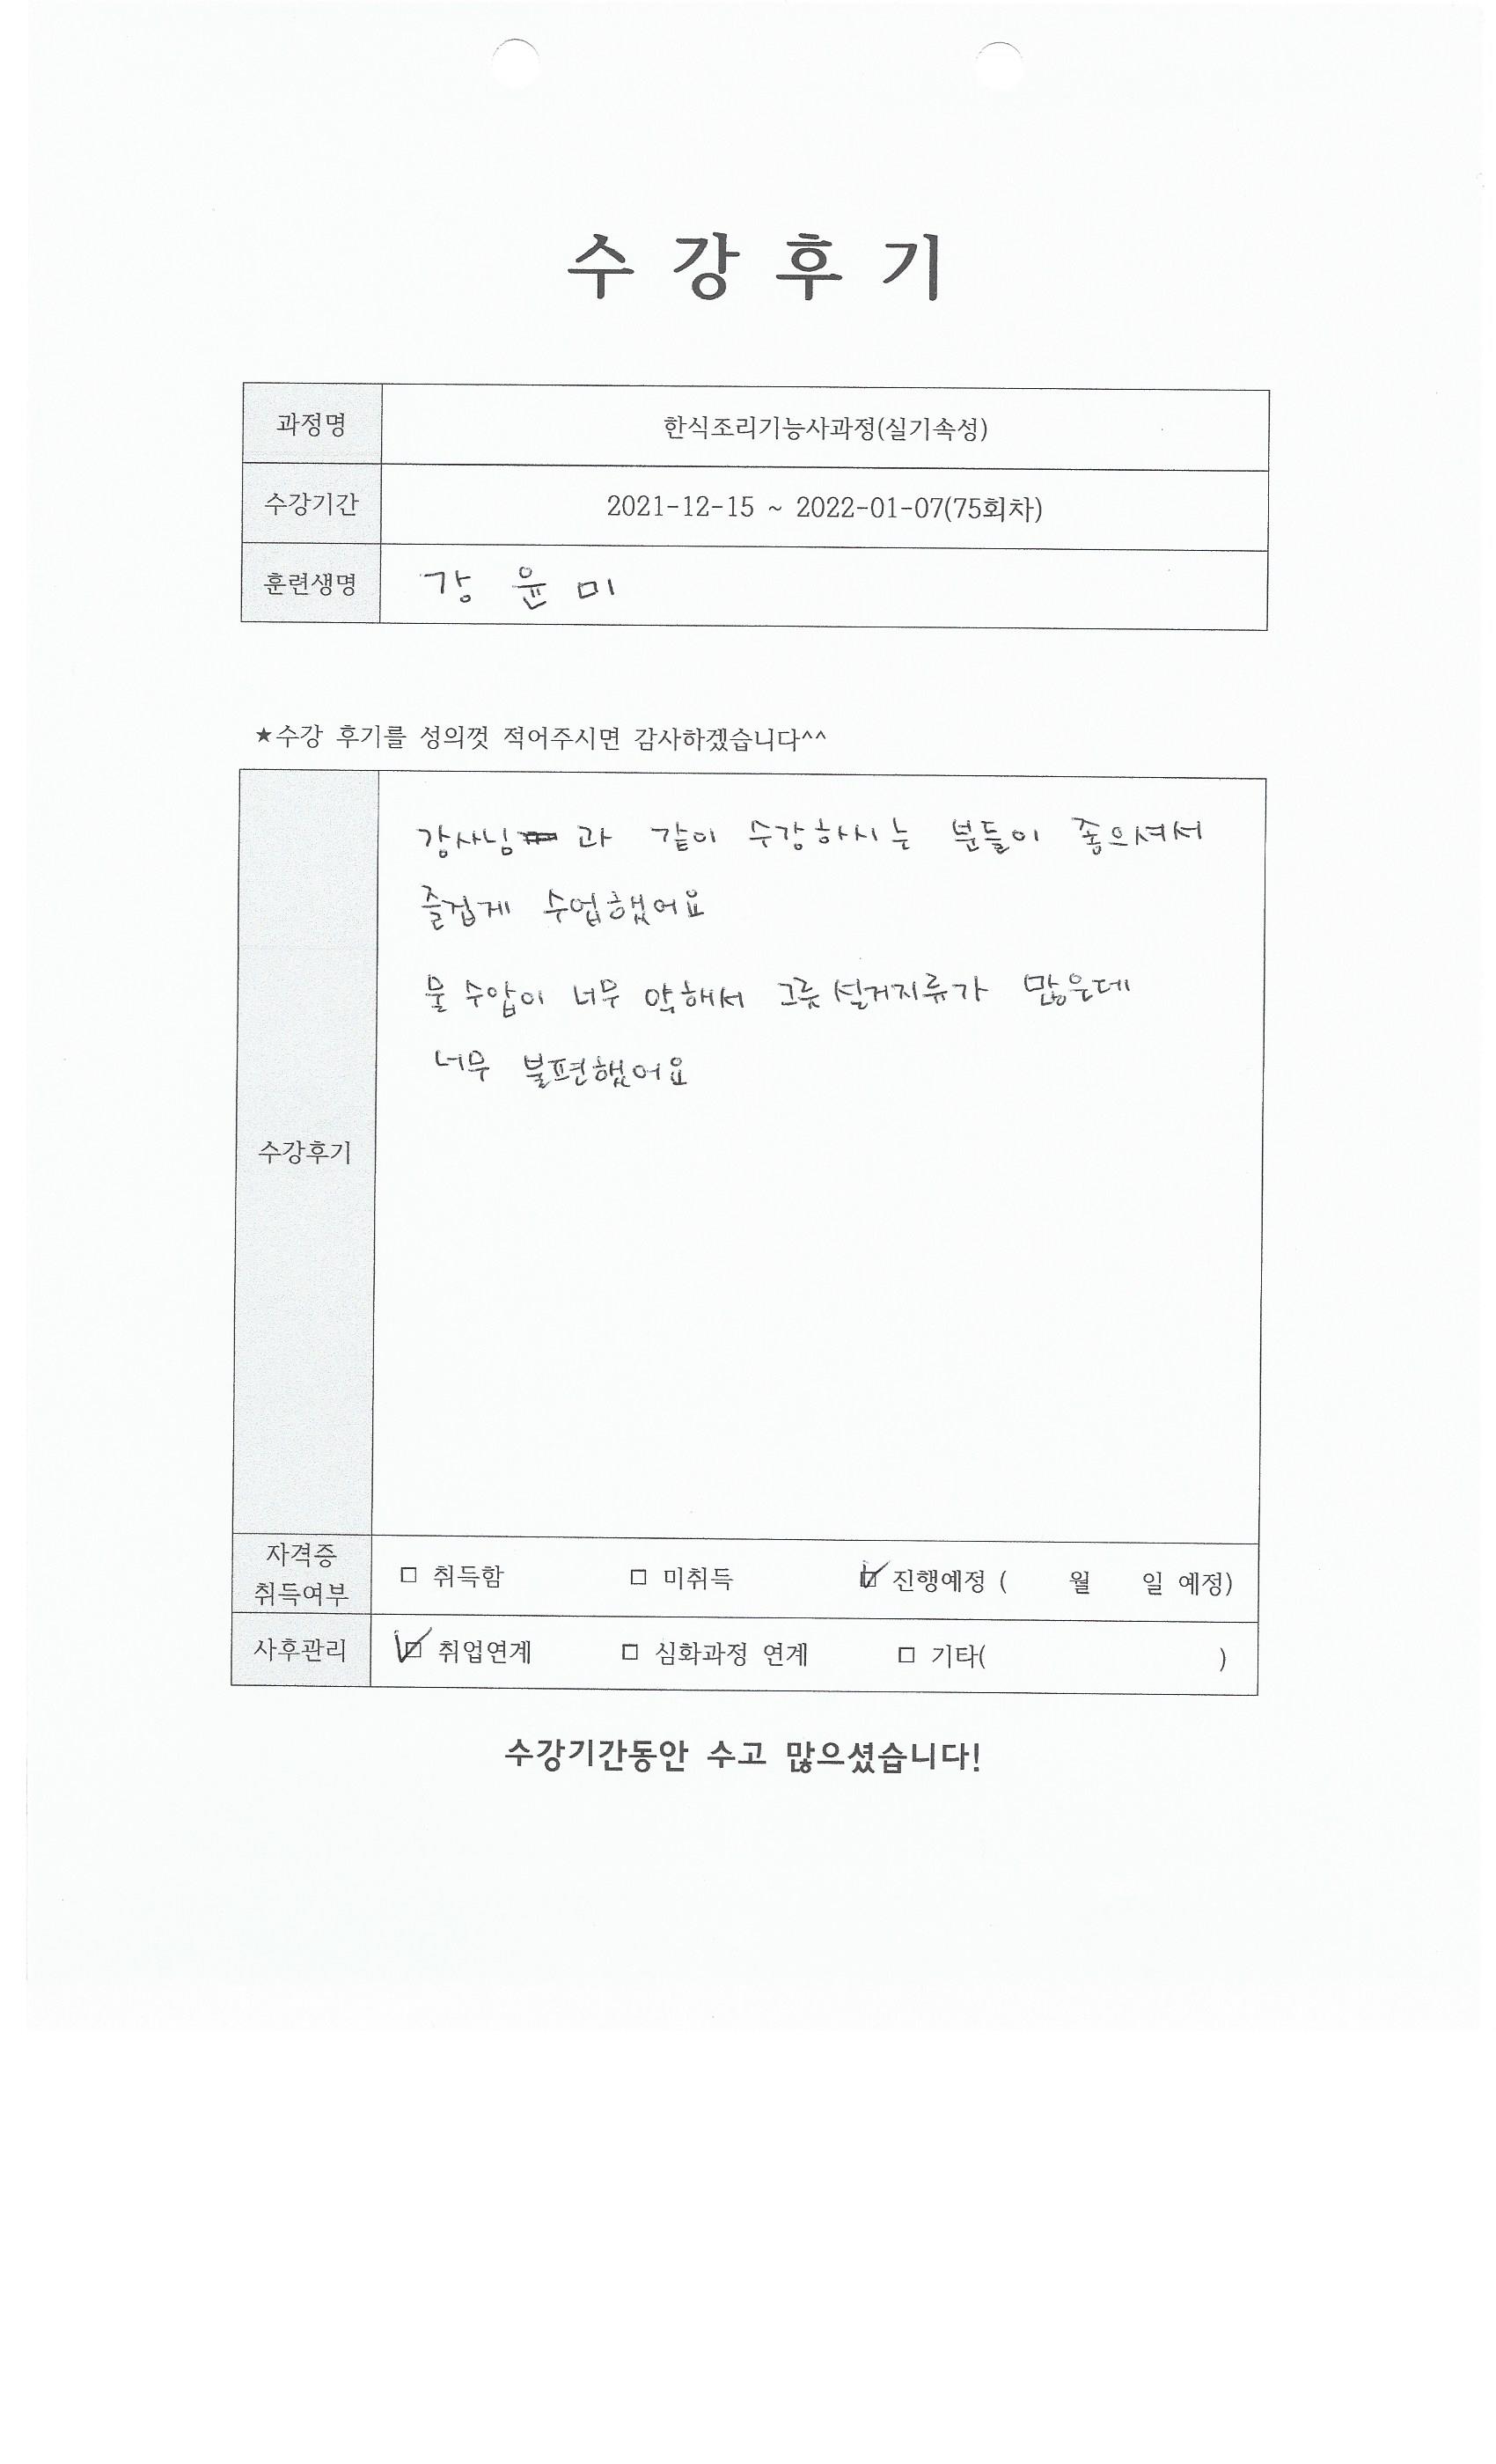 수 강 후 기
과정명 한식조리기능사과정(실기속성)
수강기간 2021-12-15 ~ 2022-01-07(75회차)
훈련생명 강 윤 미
★수강 후기를 성의껏 적어주시면 감사하겠습니다^^
강사님 과 같이 수강하시는 분들이 좋으셔서
즐겁게 수업했어요
물 수압이 너무 약해서 그릇 설거지류가 많은데
너무 불편했어요
수강후기
자격증
취득여부
□ 취득함 □ 미취득 ☑ 진행예정 ( 월 일 예정)
사후관리 ☑ 취업연계 □ 심화과정 연계 □ 기타( )
수강기간동안 수고 많으셨습니다!